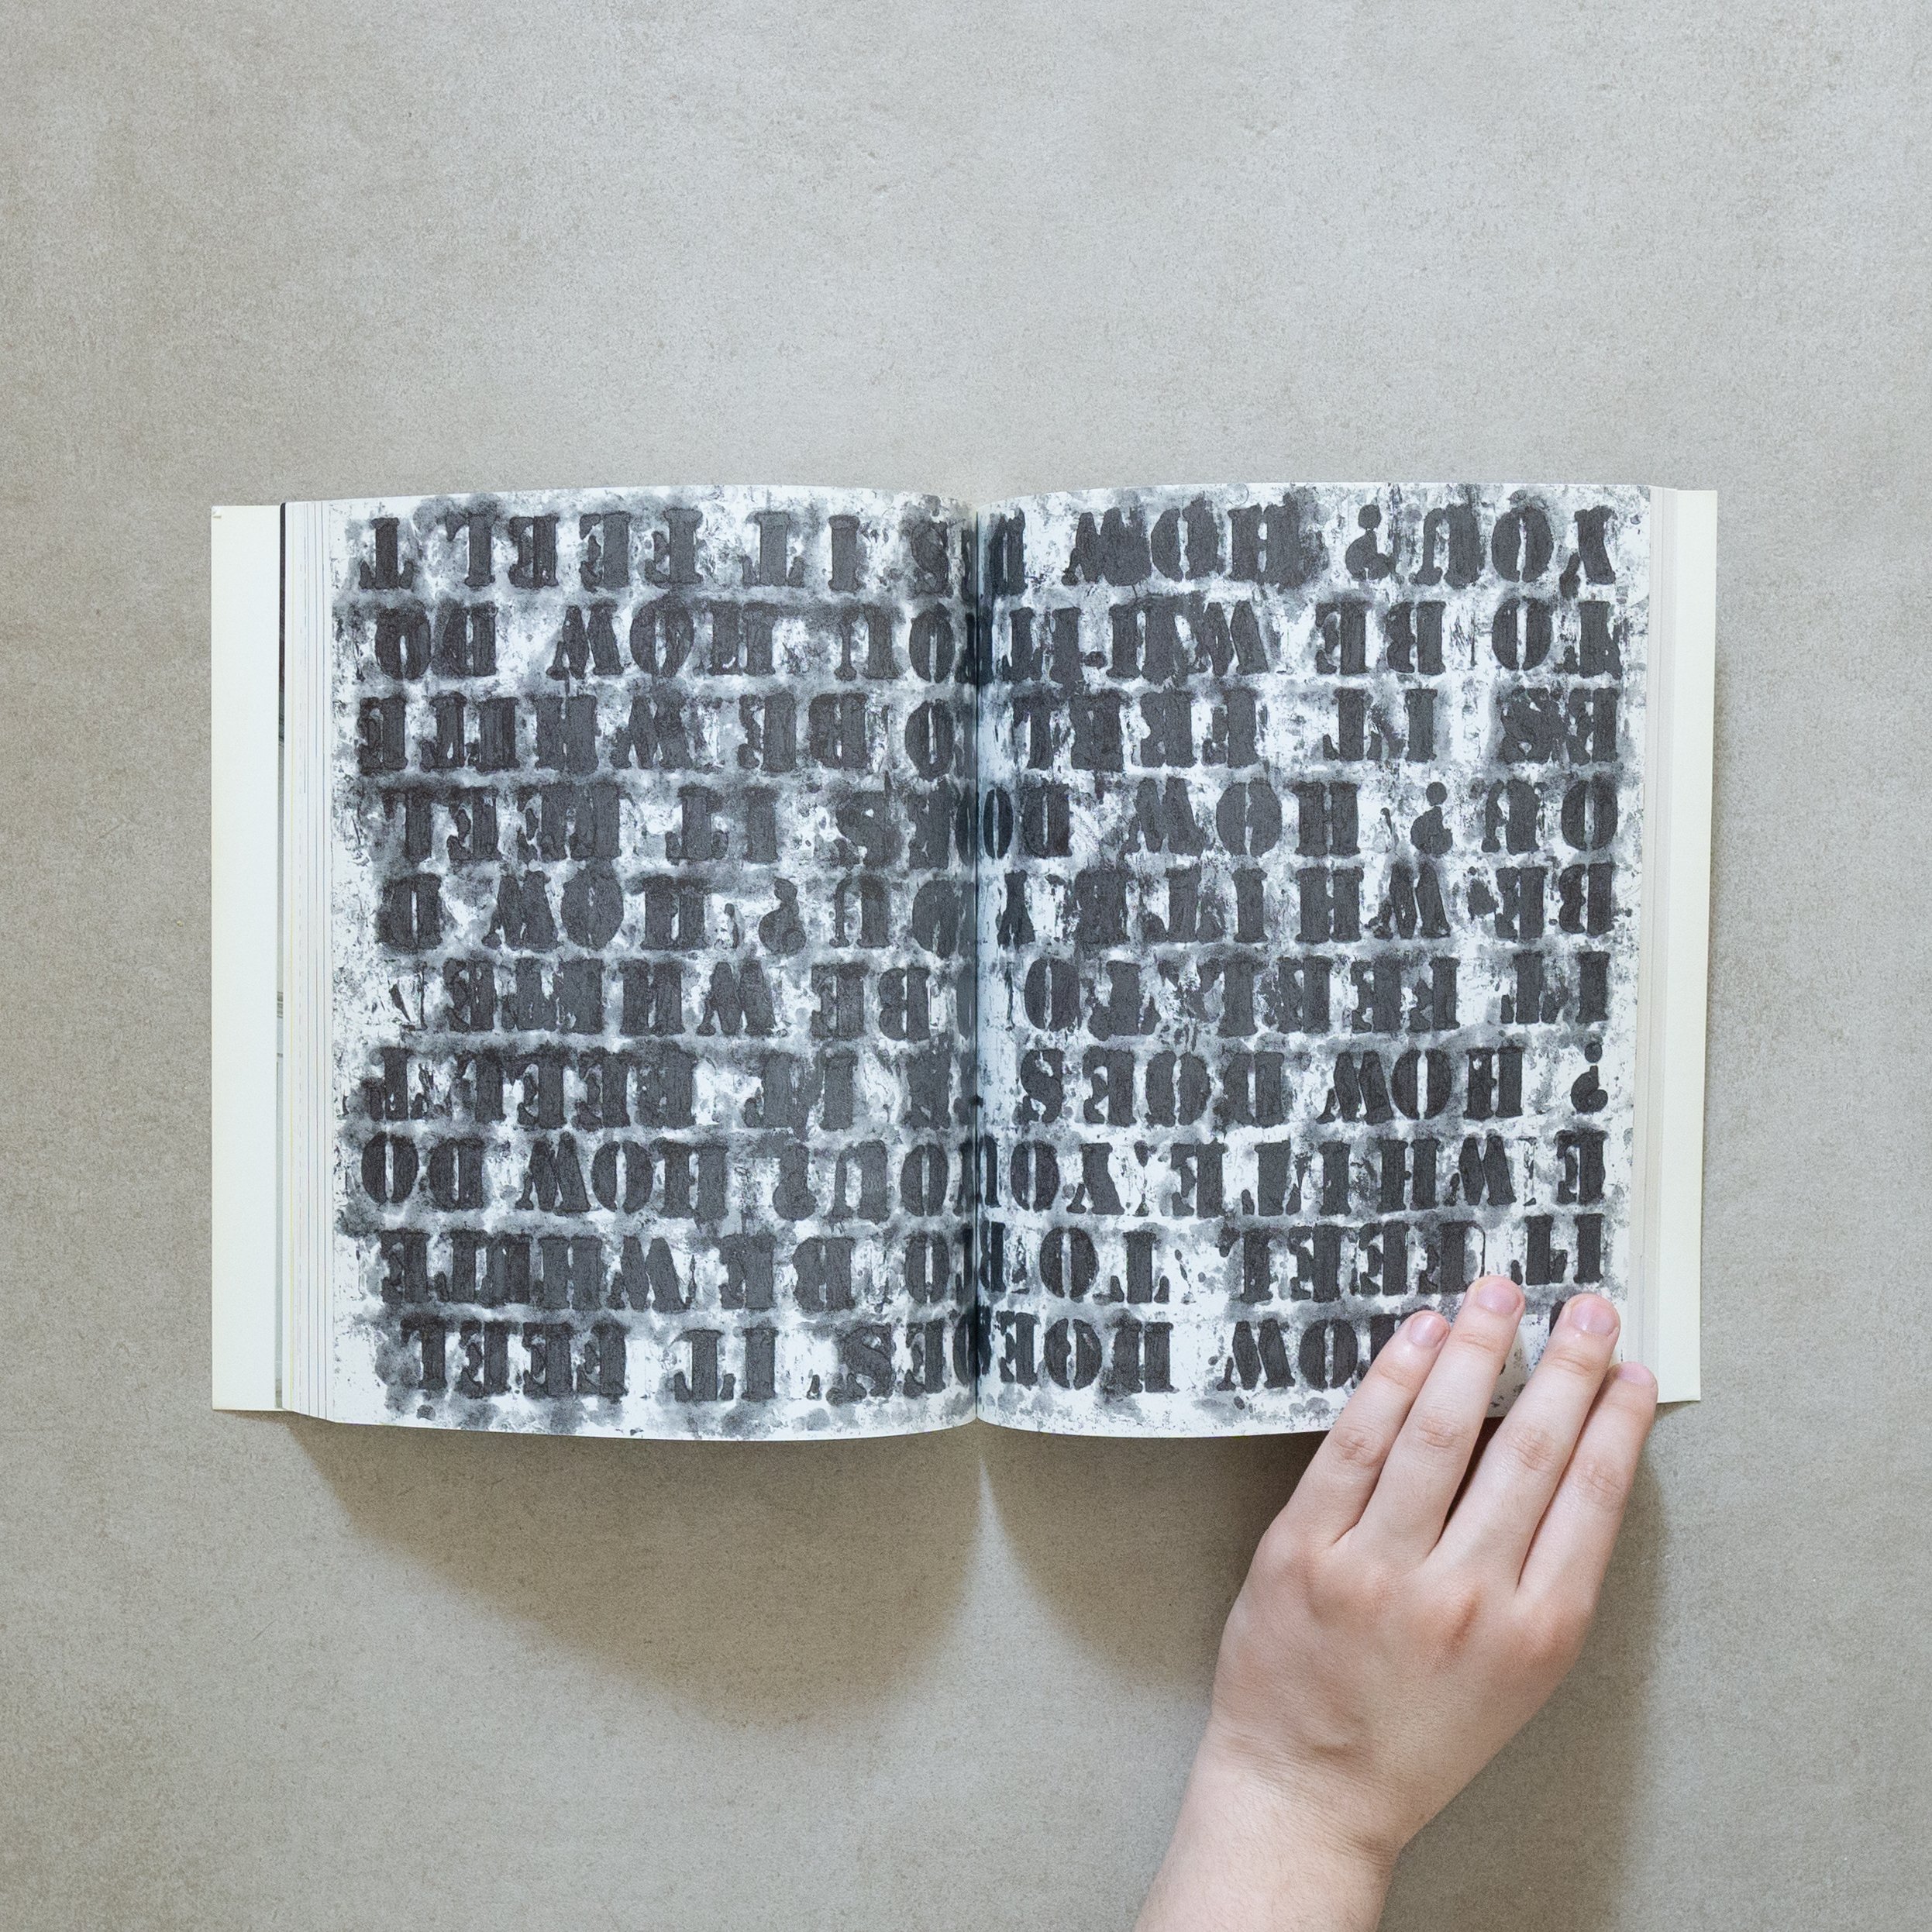 YOU? HOW D S IT FEEL T
TO BE WHIT OU HOW DO
ES IT FEEL TO BE WHITE
OU? HOW DOES IT FEEL
BE WHITE YOU? HOW D
IT FEEL TO BE WHITE
? HOW DOES IT FEEL T
E WHITE YOU? HOW DO
IT FEEL TO BE WHITE
HOW DOES IT FEEL